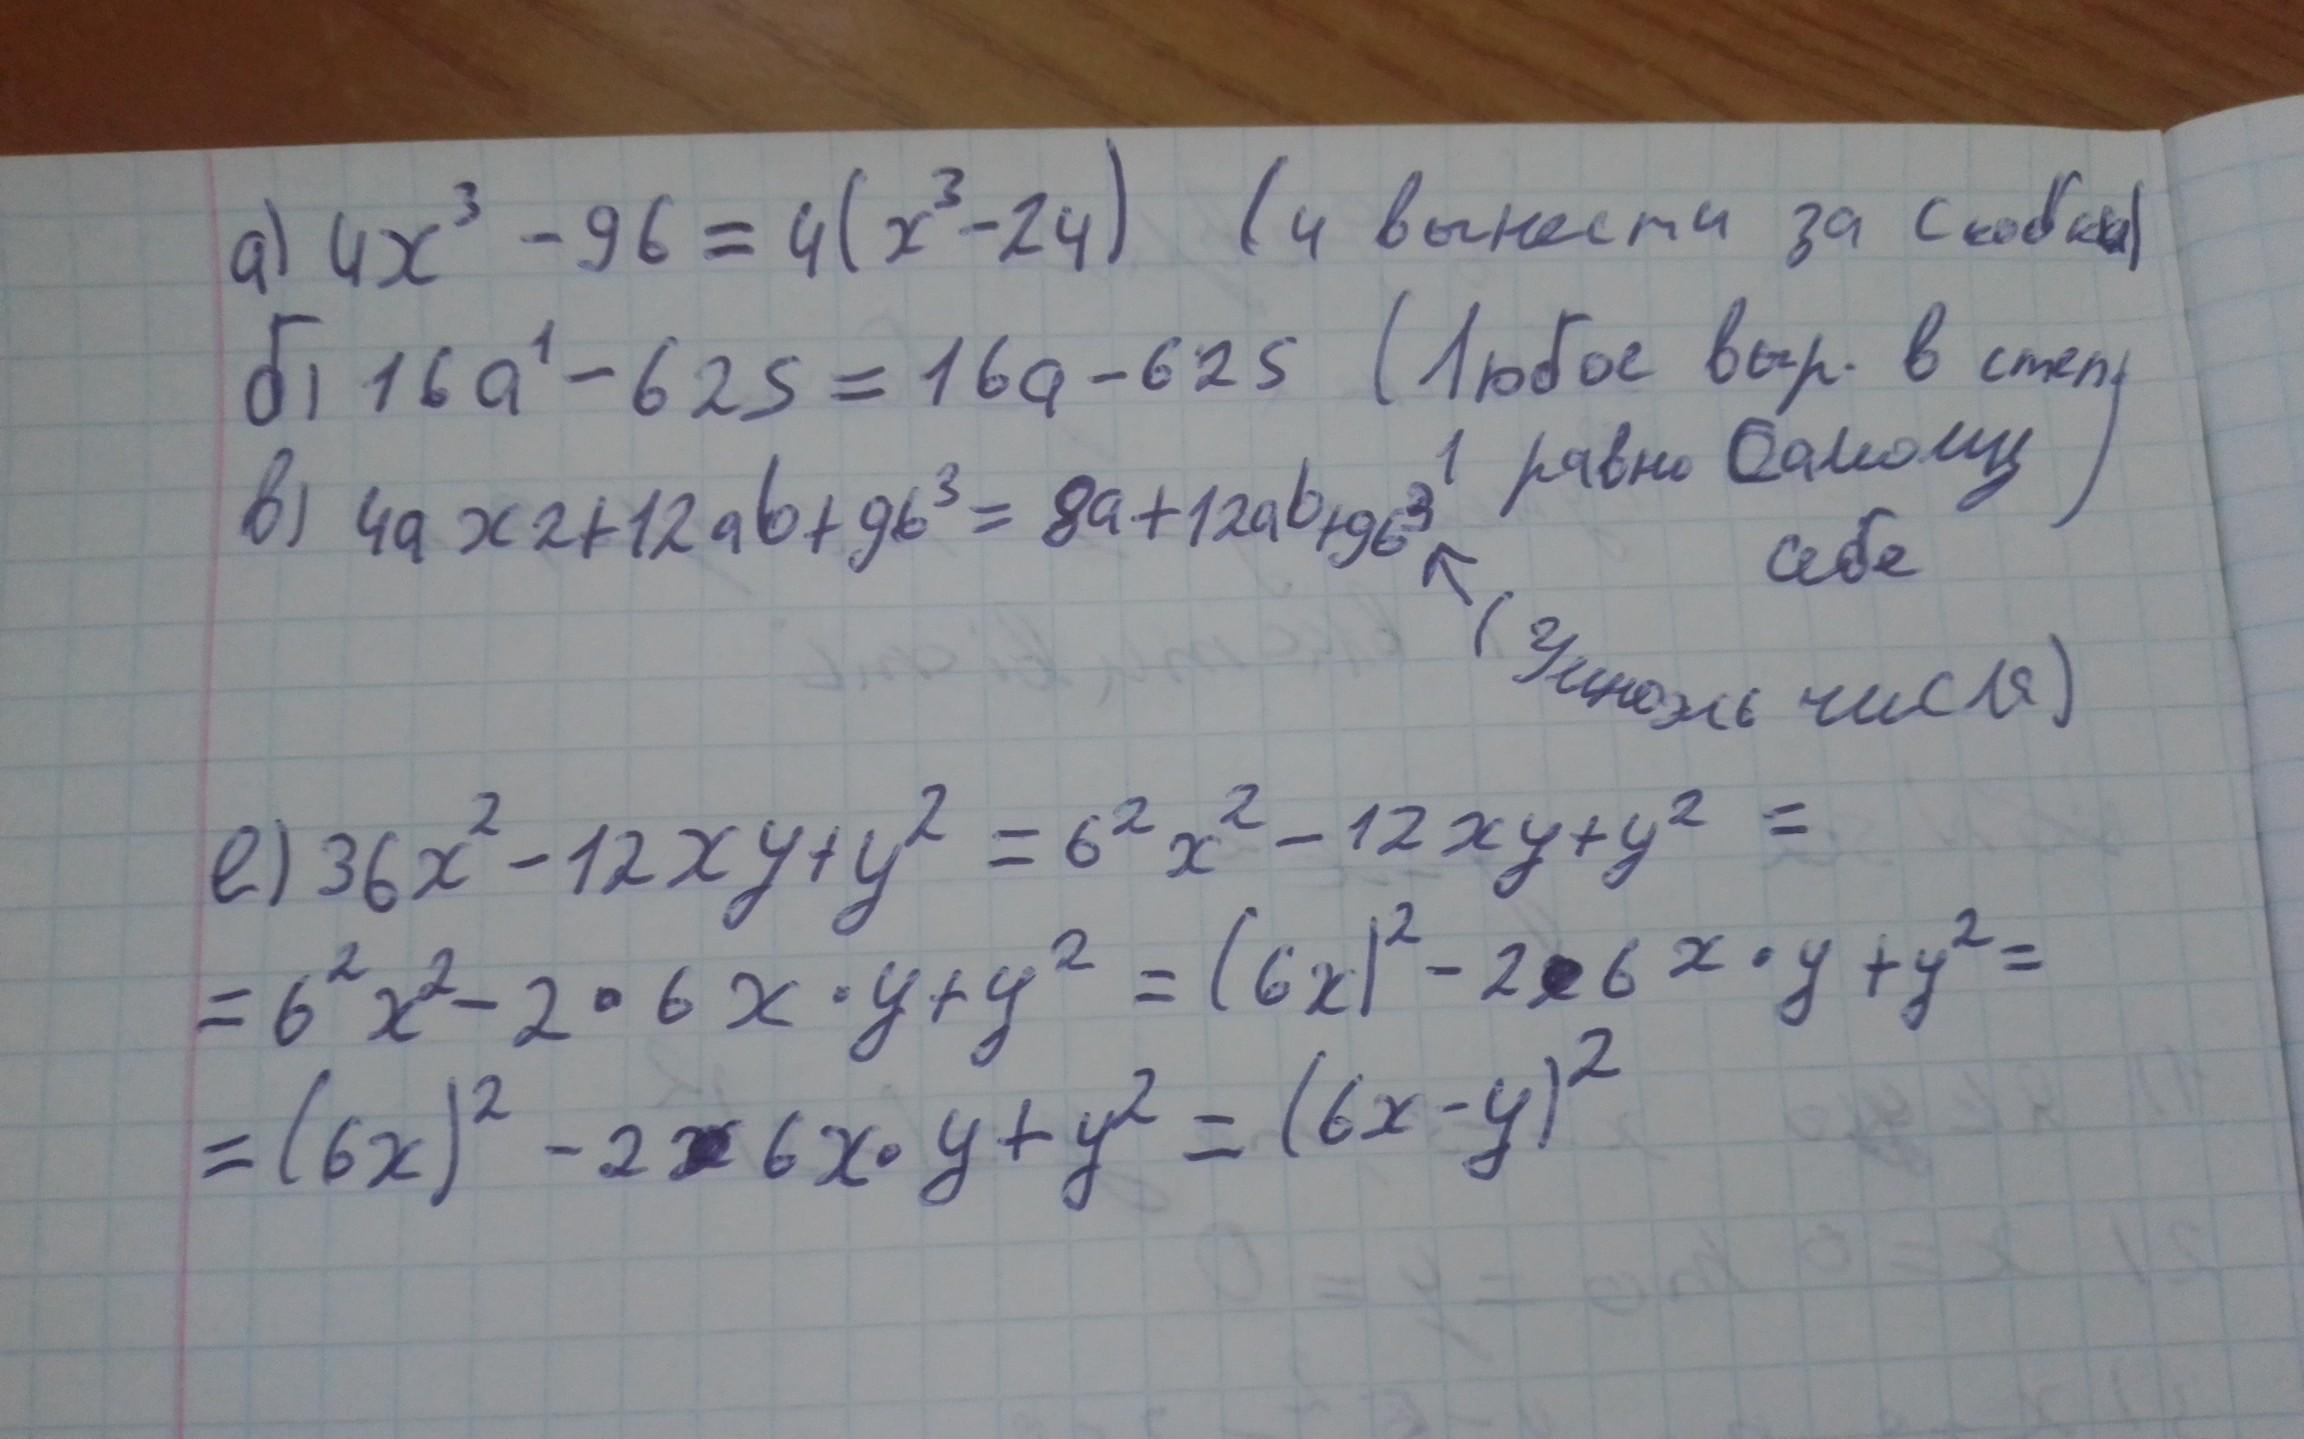 а) 4x³ - 96 = 4(x³ - 24) (4 вынести за скобки)
б) 16a¹ - 625 = 16a - 625 (Любое выр. в степ.
1 равно самому
себе)
в) 4a x 2 + 12ab + 9b³ = 8a + 12ab + 9b³
(Умножь числа)
е) 36x² - 12xy + y² = 6²x² - 12xy + y² =
= 6²x² - 2 · 6x · y + y² = (6x)² - 2 · 6x · y + y² =
= (6x)² - 2 · 6x · y + y² = (6x - y)²